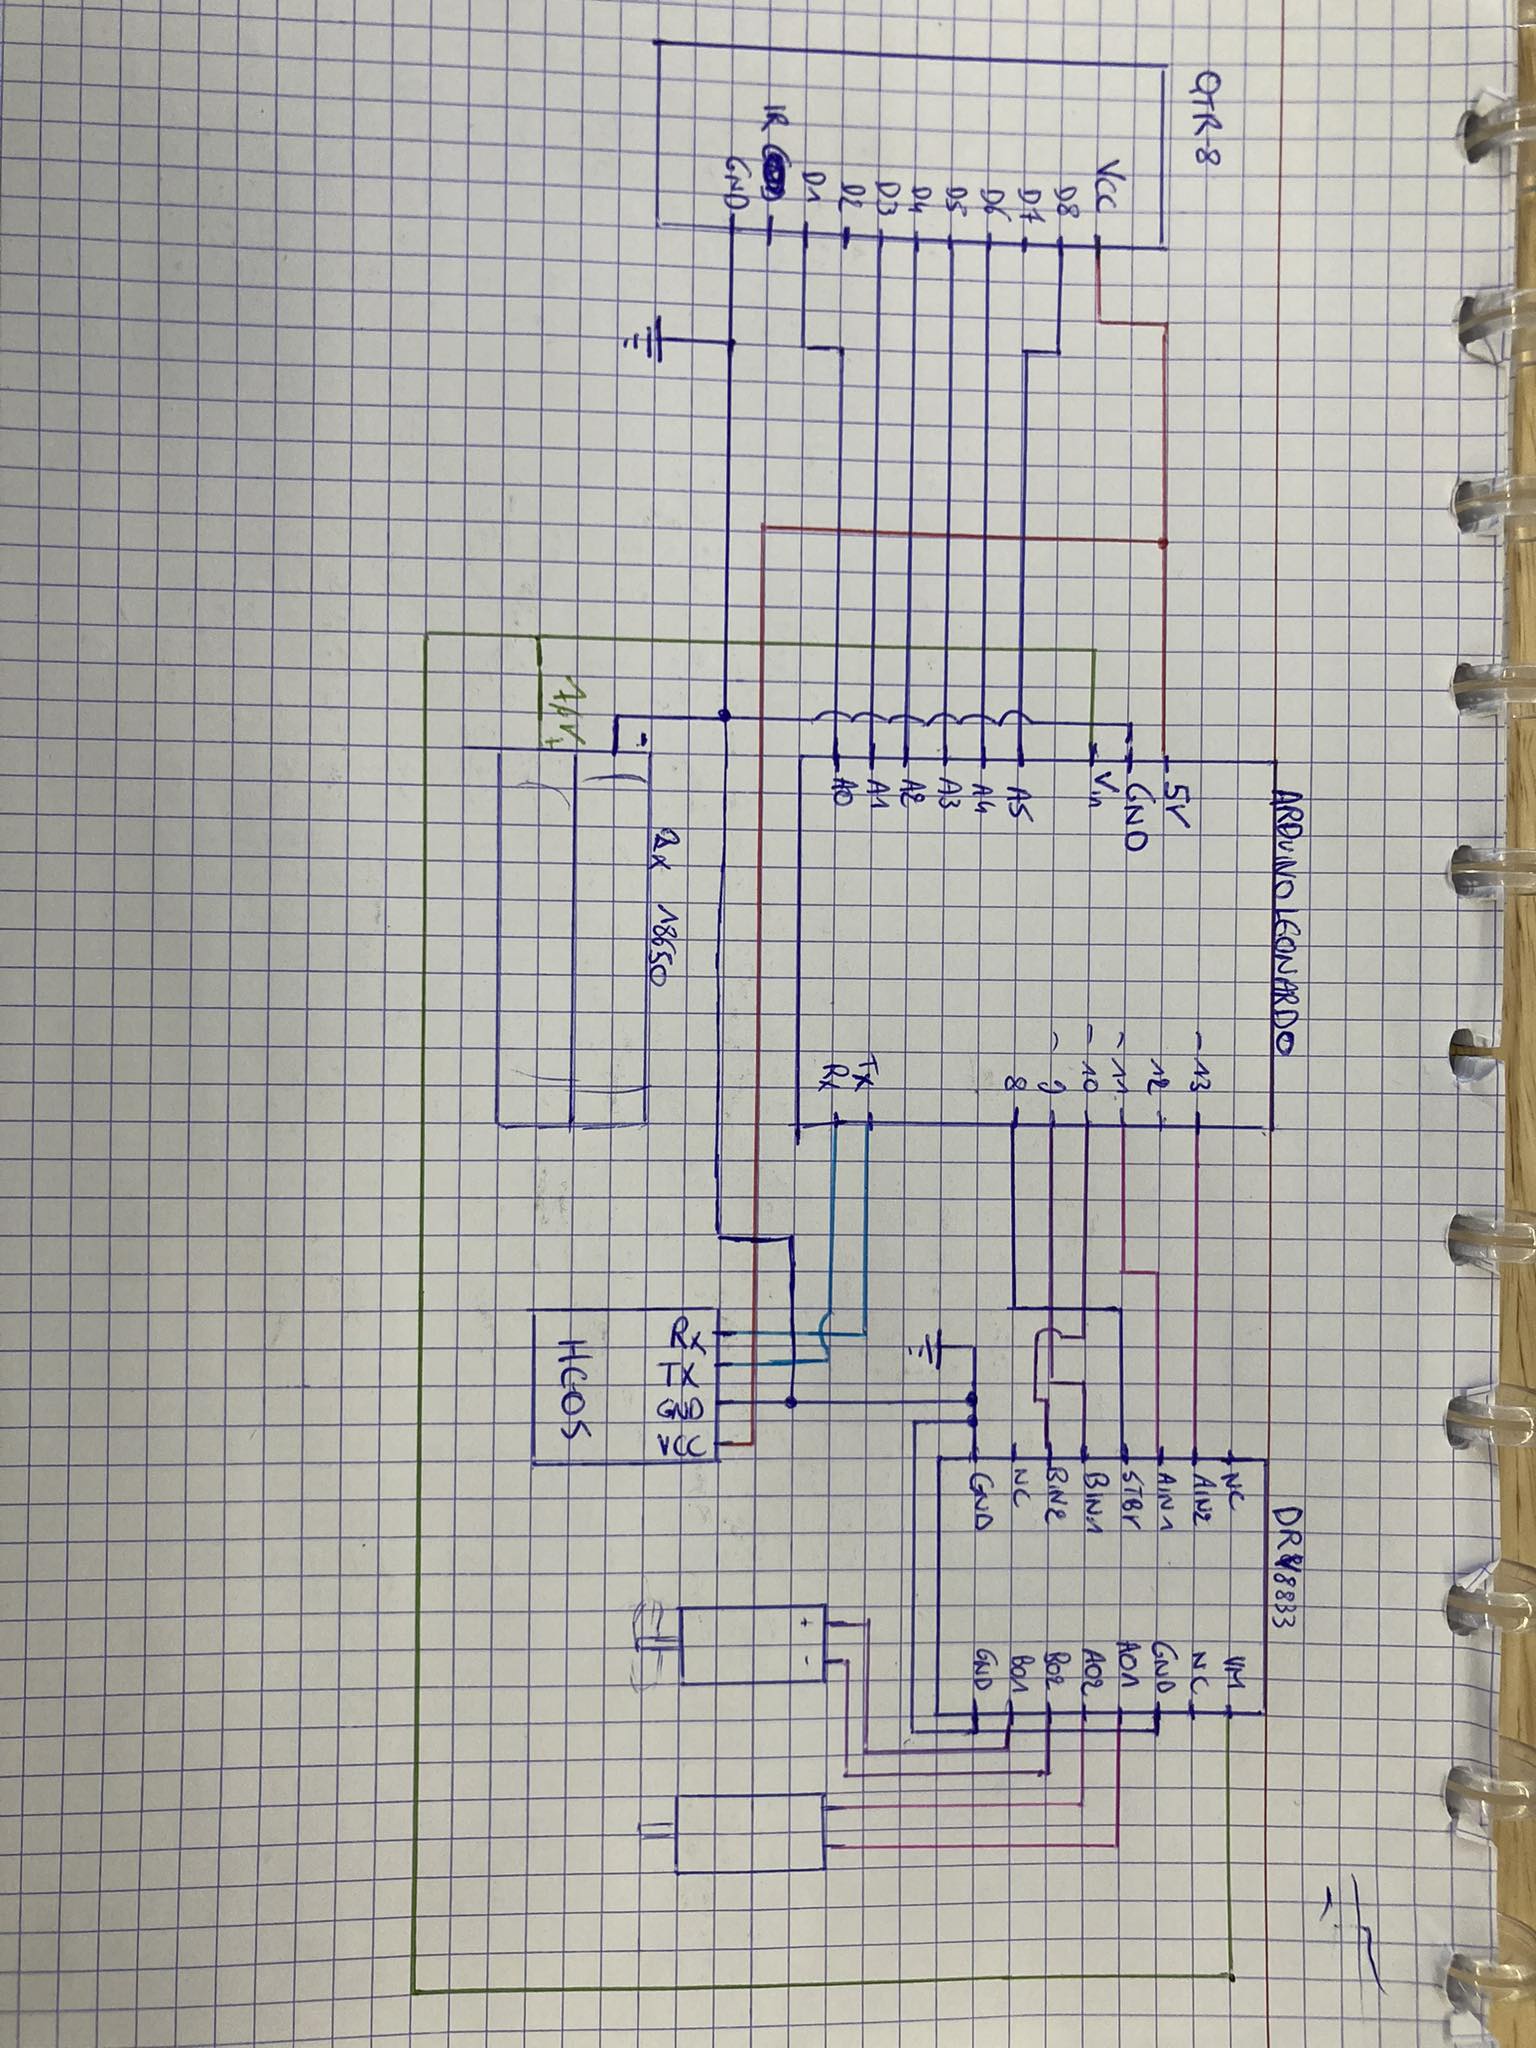 QTR-8
Vcc
D8
D7
D6
D5
D4
D3
D2
D1
IR
GND
ARDUINO LEONARDO
5V
GND
Vin
A5
A4
A3
A2
A1
A0
~13
12
~11
~10
~9
8
TX
RX
+
-
2x 18650
HC05
Rx
TX
GND
VCC
DRV8833
NC
AIN2
AIN1
STBY
BIN1
BIN2
NC
GND
VM
NC
GND
AO1
AO2
BO2
BO1
GND
+ -